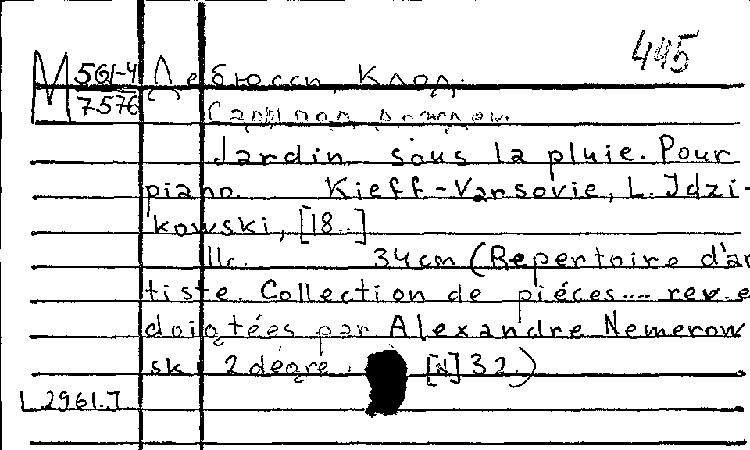 495
М 561-4 Дебюсси, Клод.
7576 Сад под дождем.
Jardin sous la pluie. Pour
piano. Kieff-Varsovie, L. Idzi-
kowski, [18..]
11c. 34cm (Repertoire d'ar
tiste. Collection de piéces... rev. e
doigtées par Alexandre Nemerow
sk 2 degré. [N] 32.)
L.2961.I